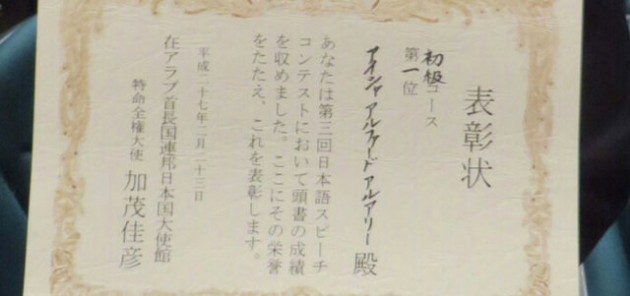 表彰状
初級コース
第一位
アイシャ アルファード アルアリー 殿
あなたは第三回日本語スピーチ
コンテストにおいて頭書の成績
を収めました。ここにその栄誉
をたたえ、これを表彰します。
平成二十七年二月二十三日
在アラブ首長国連邦日本国大使館
特命全権大使 加茂佳彦